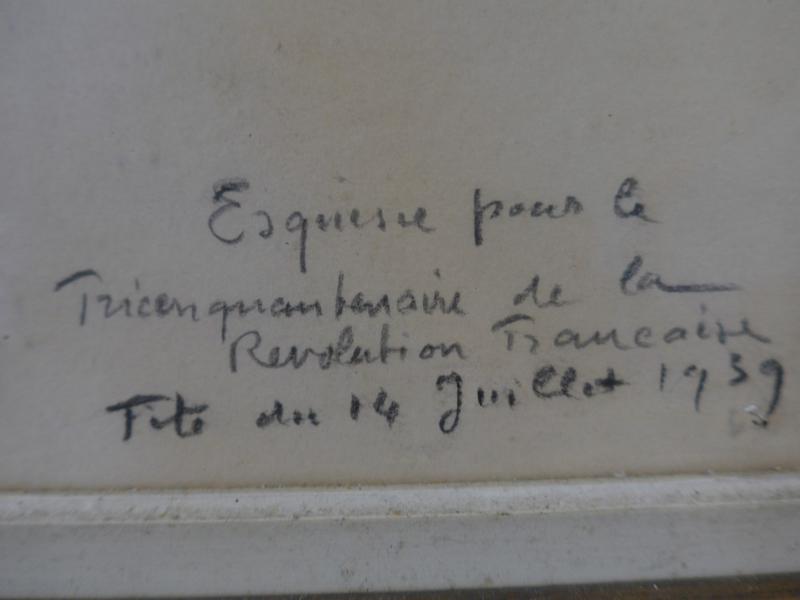 Esquisse pour le
Tricenquantenaire de la
Revolution Francaise
Fete du 14 Juillet 1939